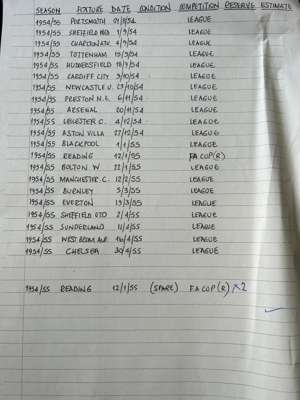 SEASON FIXTURE DATE CONDITION COMPETITION RESERVE ESTIMATE
1954/55 PORTSMOUTH 21/8/54 LEAGUE
1954/55 SHEFFIELD WED 1/9/54 LEAGUE
1954/55 CHARLTON ATH 4/9/54 LEAGUE
1954/55 TOTTENHAM 15/9/54 LEAGUE
1954/55 HUDDERSFIELD 18/9/54 LEAGUE
1954/55 CARDIFF CITY 9/10/54 LEAGUE
1954/55 NEWCASTLE U. 23/10/54 LEAGUE
1954/55 PRESTON N.E. 6/11/54 LEAGUE
1954/55 ARSENAL 20/11/54 LEAGUE
1954/55 LEICESTER C. 4/12/54 LEAGUE
1954/55 ASTON VILLA 27/12/54 LEAGUE
1954/55 BLACKPOOL 1/1/55 LEAGUE
1954/55 READING 12/1/55 FA CUP(R)
1954/55 BOLTON W. 22/1/55 LEAGUE
1954/55 MANCHESTER C. 12/2/55 LEAGUE
1954/55 BURNLEY 5/3/55 LEAGUE
1954/55 EVERTON 19/3/55 LEAGUE
1954/55 SHEFFIELD UTD 2/4/55 LEAGUE
1954/55 SUNDERLAND 11/4/55 LEAGUE
1954/55 WEST BROM ALB 16/4/55 LEAGUE
1954/55 CHELSEA 30/4/55 LEAGUE
1954/55 READING 12/1/55 (SPARE) F.A CUP (R) X2